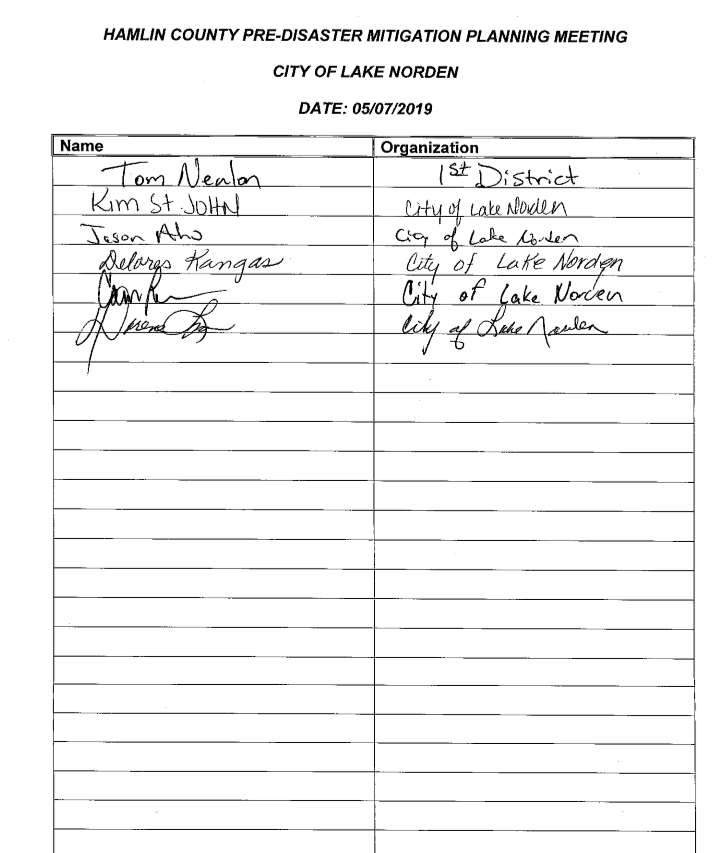 HAMLIN COUNTY PRE-DISASTER MITIGATION PLANNING MEETING
CITY OF LAKE NORDEN
DATE: 05/07/2019
Name Organization
Tom Nealon 1st District
Kim St. JOHN City of Lake Norden
Jason Aho City of Lake Norden
Delores Kangas City of Lake Norden
City of Lake Norden
City of Lake Norden